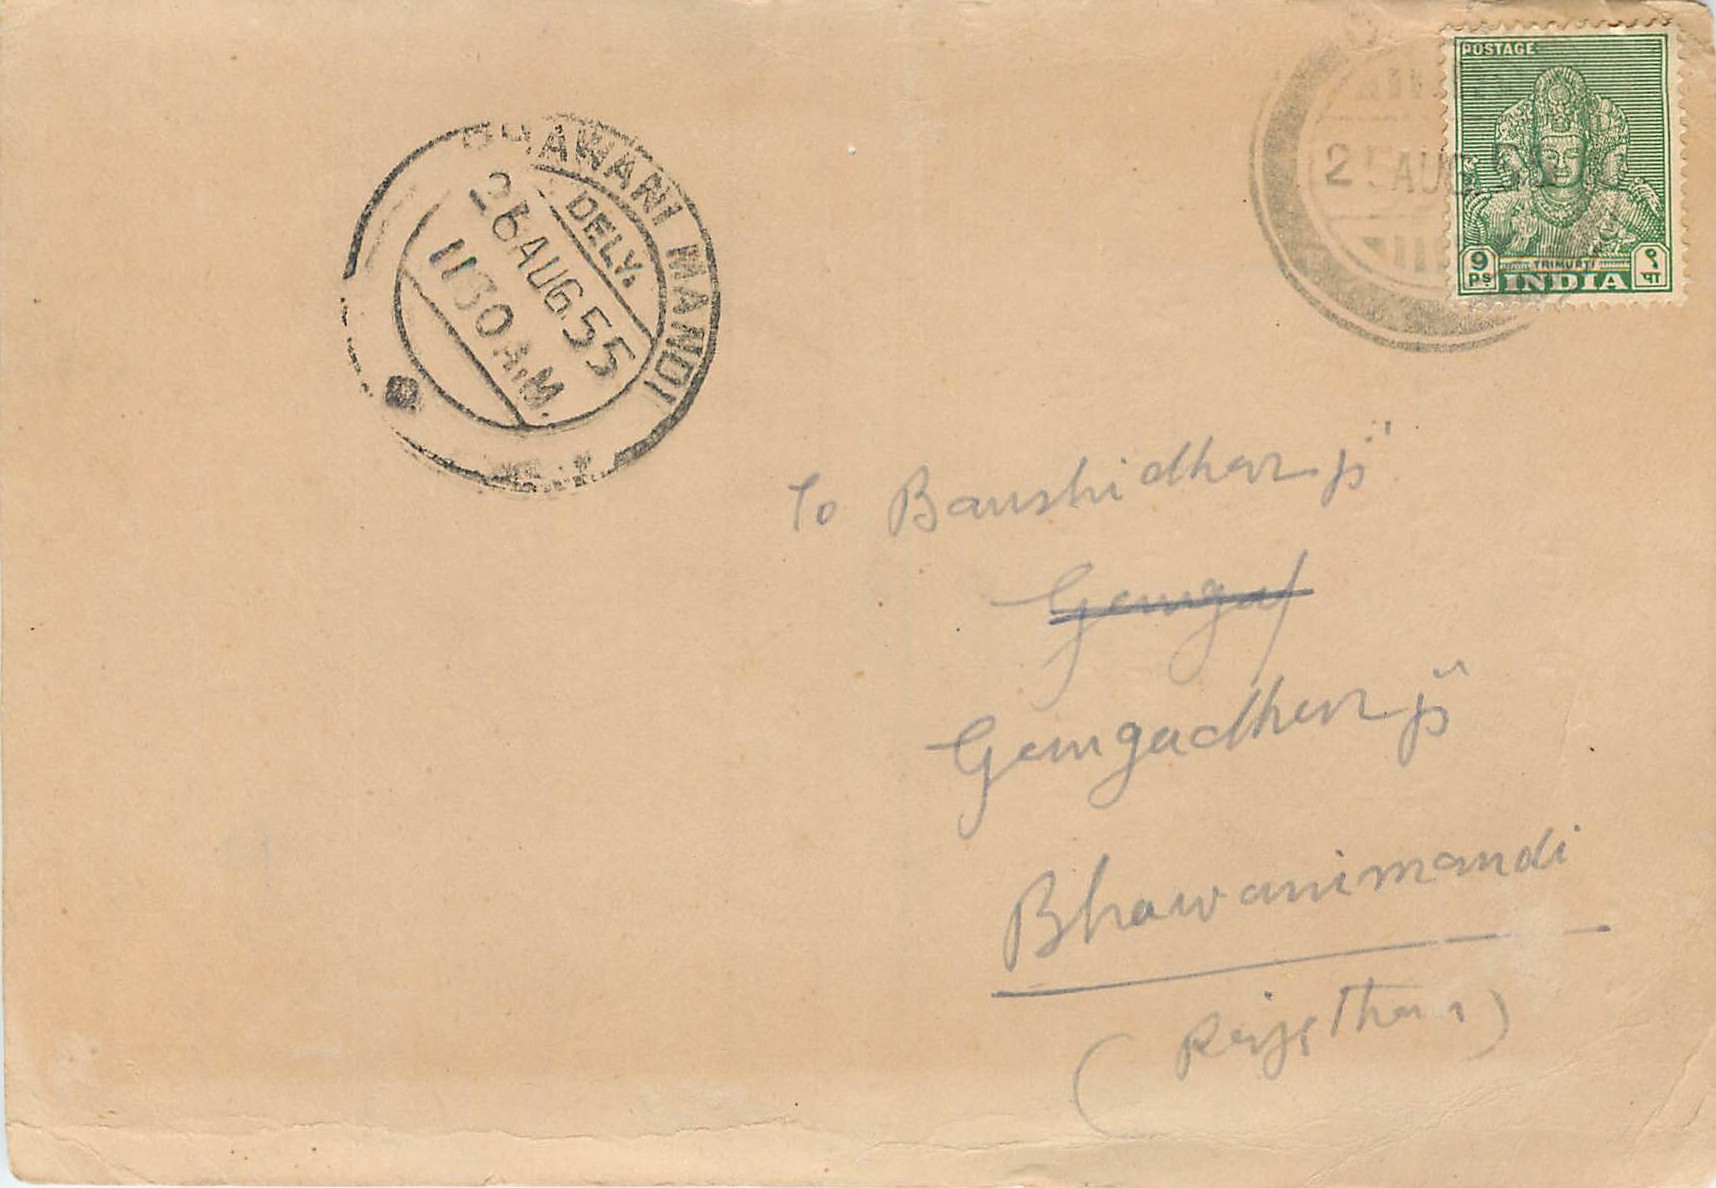 POSTAGE
25 AUG 55
9 Ps
TRIMURTI
९ पा
INDIA
BHAWANI MANDI
DELY.
26 AUG. 55
11 30 A.M.
To Banshidhar ji
Gangadhar ji
Bhawanimandi
(Rajsthan)